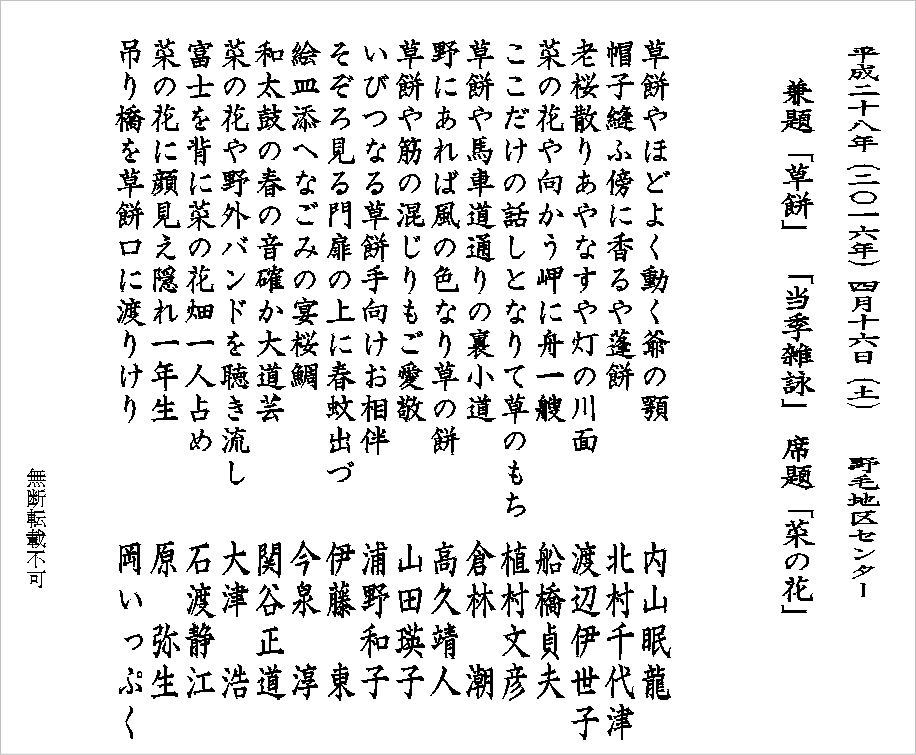 平成二十八年(二〇一六年)四月十六日(土) 野毛地区センター
兼題「草餅」 「当季雑詠」 席題「菜の花」
草餅やほどよく動く爺の顎 内山眠龍
帽子縫ふ傍に香るや蓬餅 北村千代津
老桜散りあやなすや灯の川面 渡辺伊世子
菜の花や向かう岬に舟一艘 船橋貞夫
ここだけの話しとなりて草のもち 植村文彦
草餅や馬車道通りの裏小道 倉林 潮
野にあれば風の色なり草の餅 高久靖人
草餅や筋の混じりもご愛敬 山田瑛子
いびつなる草餅手向けお相伴 浦野和子
そぞろ見る門扉の上に春蚊出づ 伊藤 東
絵皿添へなごみの宴桜鯛 今泉 淳
和太鼓の春の音確か大道芸 関谷正道
菜の花や野外バンドを聴き流し 大津 浩
富士を背に菜の花畑一人占め 石渡静江
菜の花に顔見え隠れ一年生 原 弥生
吊り橋を草餅口に渡りけり 岡いっぷく
無断転載不可